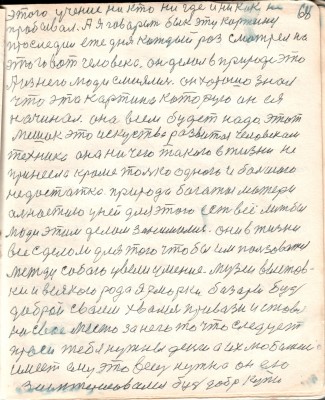 68
этого учение никто нигде и никак не
пробивал. А я говарят бык эту картину
проследил ежедня каждый раз смотрел на
этого вот человека. он делол в природе это
А из него люди смиялис. он хорошо знал
что это картина которую он ся
начинал. она всем будет нада этот
это искуство развитая человекам
техника она ничего такого в жизни не
принесла кроме только одного и балшого
недостатка. природа богата матери
у ней для этого ест всё лиж бы
люди этим делом занималис. они в жизни
все сделоли для того что бы им ползоватся
между собою умение. музеи выстов-
ки и всякого рода ярморки базары буд
доброй своем хвались привази и став
на свое место за него то что следует
проси тебя нужны денги а их
имеет ему это вещ нужна он ею
буд добр купи